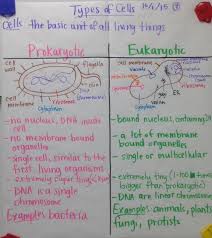 Types of Cells
Cells the basic unit of all living things
Prokaryotic
Eukaryotic
cell wall
flagella
cell membrane
ribosomes
cytoplasm
vacuole
ER
cytoplasm
- no nucleus, DNA inside cell
- no membrane bound organelles
- single cell, similar to the first living organisms
- DNA is a single chromosome
Examples bacteria
- bound nucleus, containing
- a lot of membrane bound organelles
- single or multicellular
- extremely tiny (1-100
bigger than prokaryotic)
- DNA is in chromosomes
Examples: animals, plants
fungi, protists